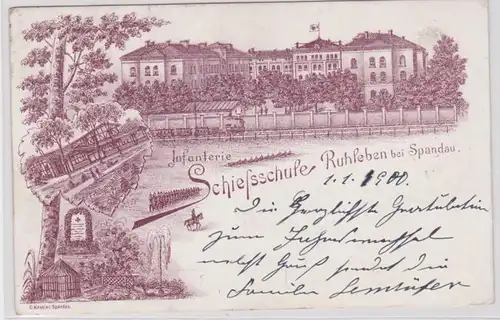 Infanterie
Schiefsschule Ruhleben bei Spandau.
1.1.1900.
Die Herzlichste Gratulation
zum Jahreswechsel
nebst Gruß sendet die
Familie